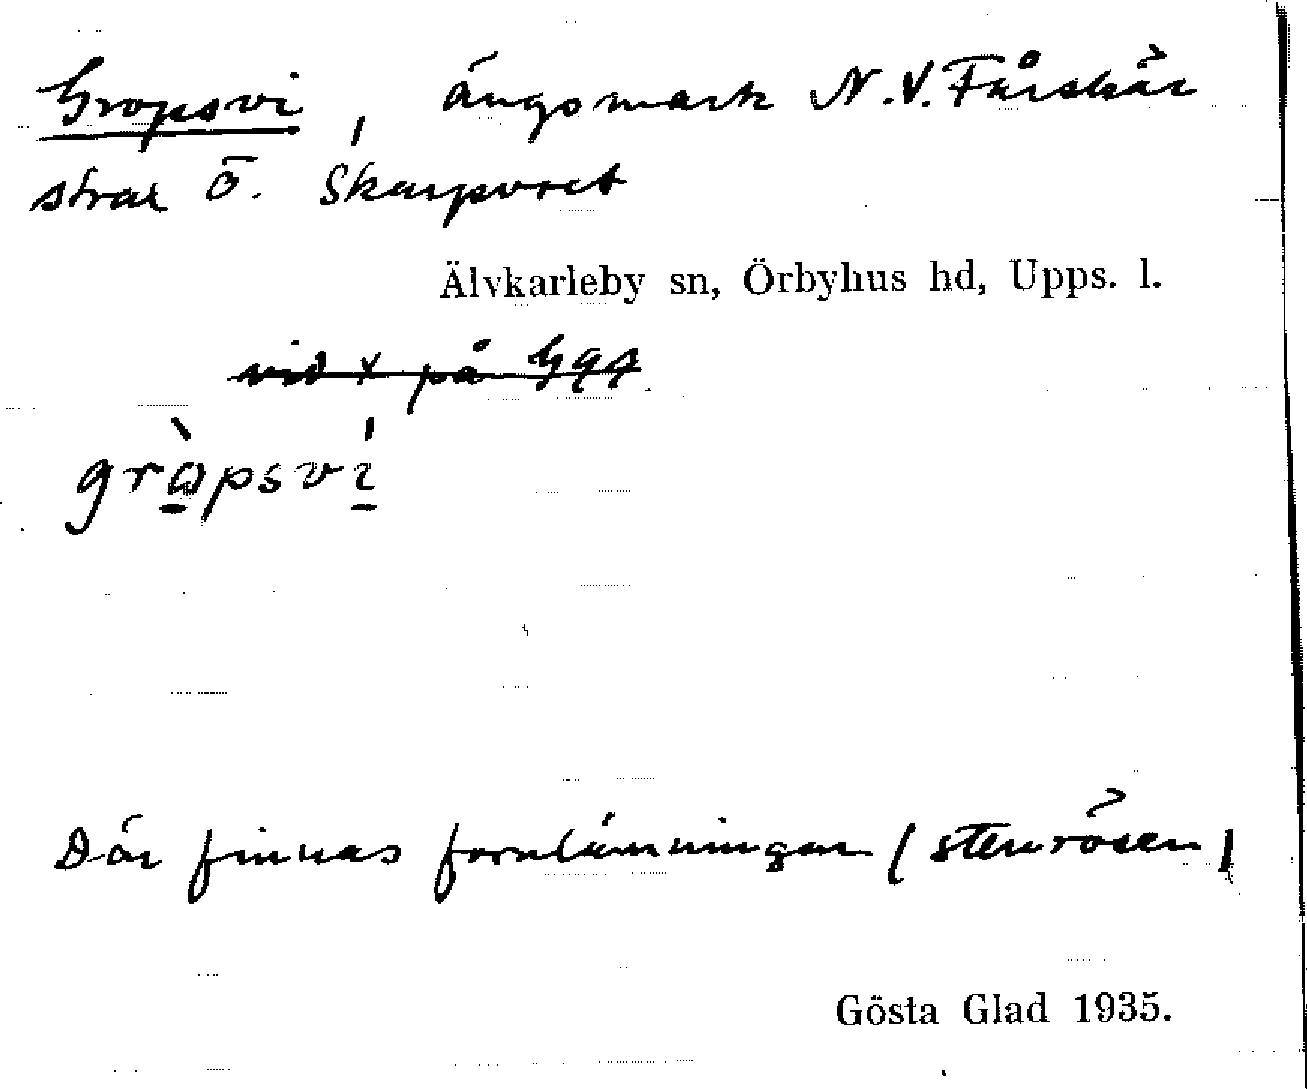 Gropsvi, ängsmark N.V. Fårskär
strax Ö. Skarpvret
Älvkarleby sn, Örbyhus hd, Upps. l.
vid + på
gròpsví
Där finnas fornlämningar (stenrösen)
Gösta Glad 1935.